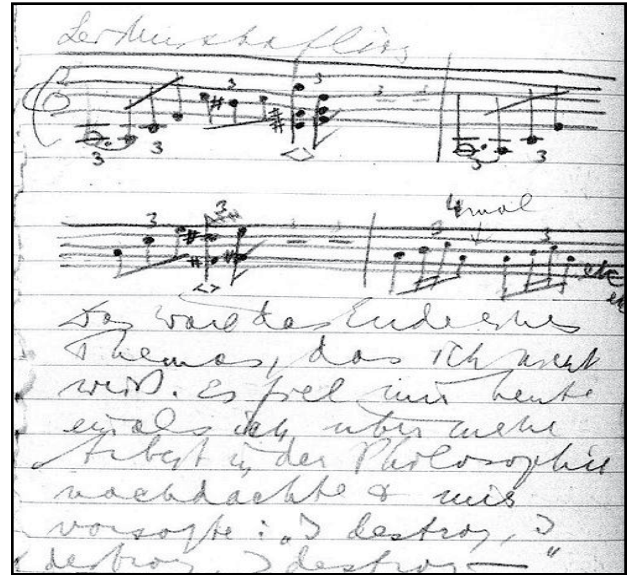 Leidenschaftlich
3 3 3 3 3 3 3
3 3 4mal 3 3 etc
Das wäre das Ende eines
Themas, das ich nicht
weiß. Es fiel mir heute
ein als ich über meine
Arbeit in der Philosophie
nachdachte & mir
vorsagte: „I destroy, I
destroy, I destroy —"